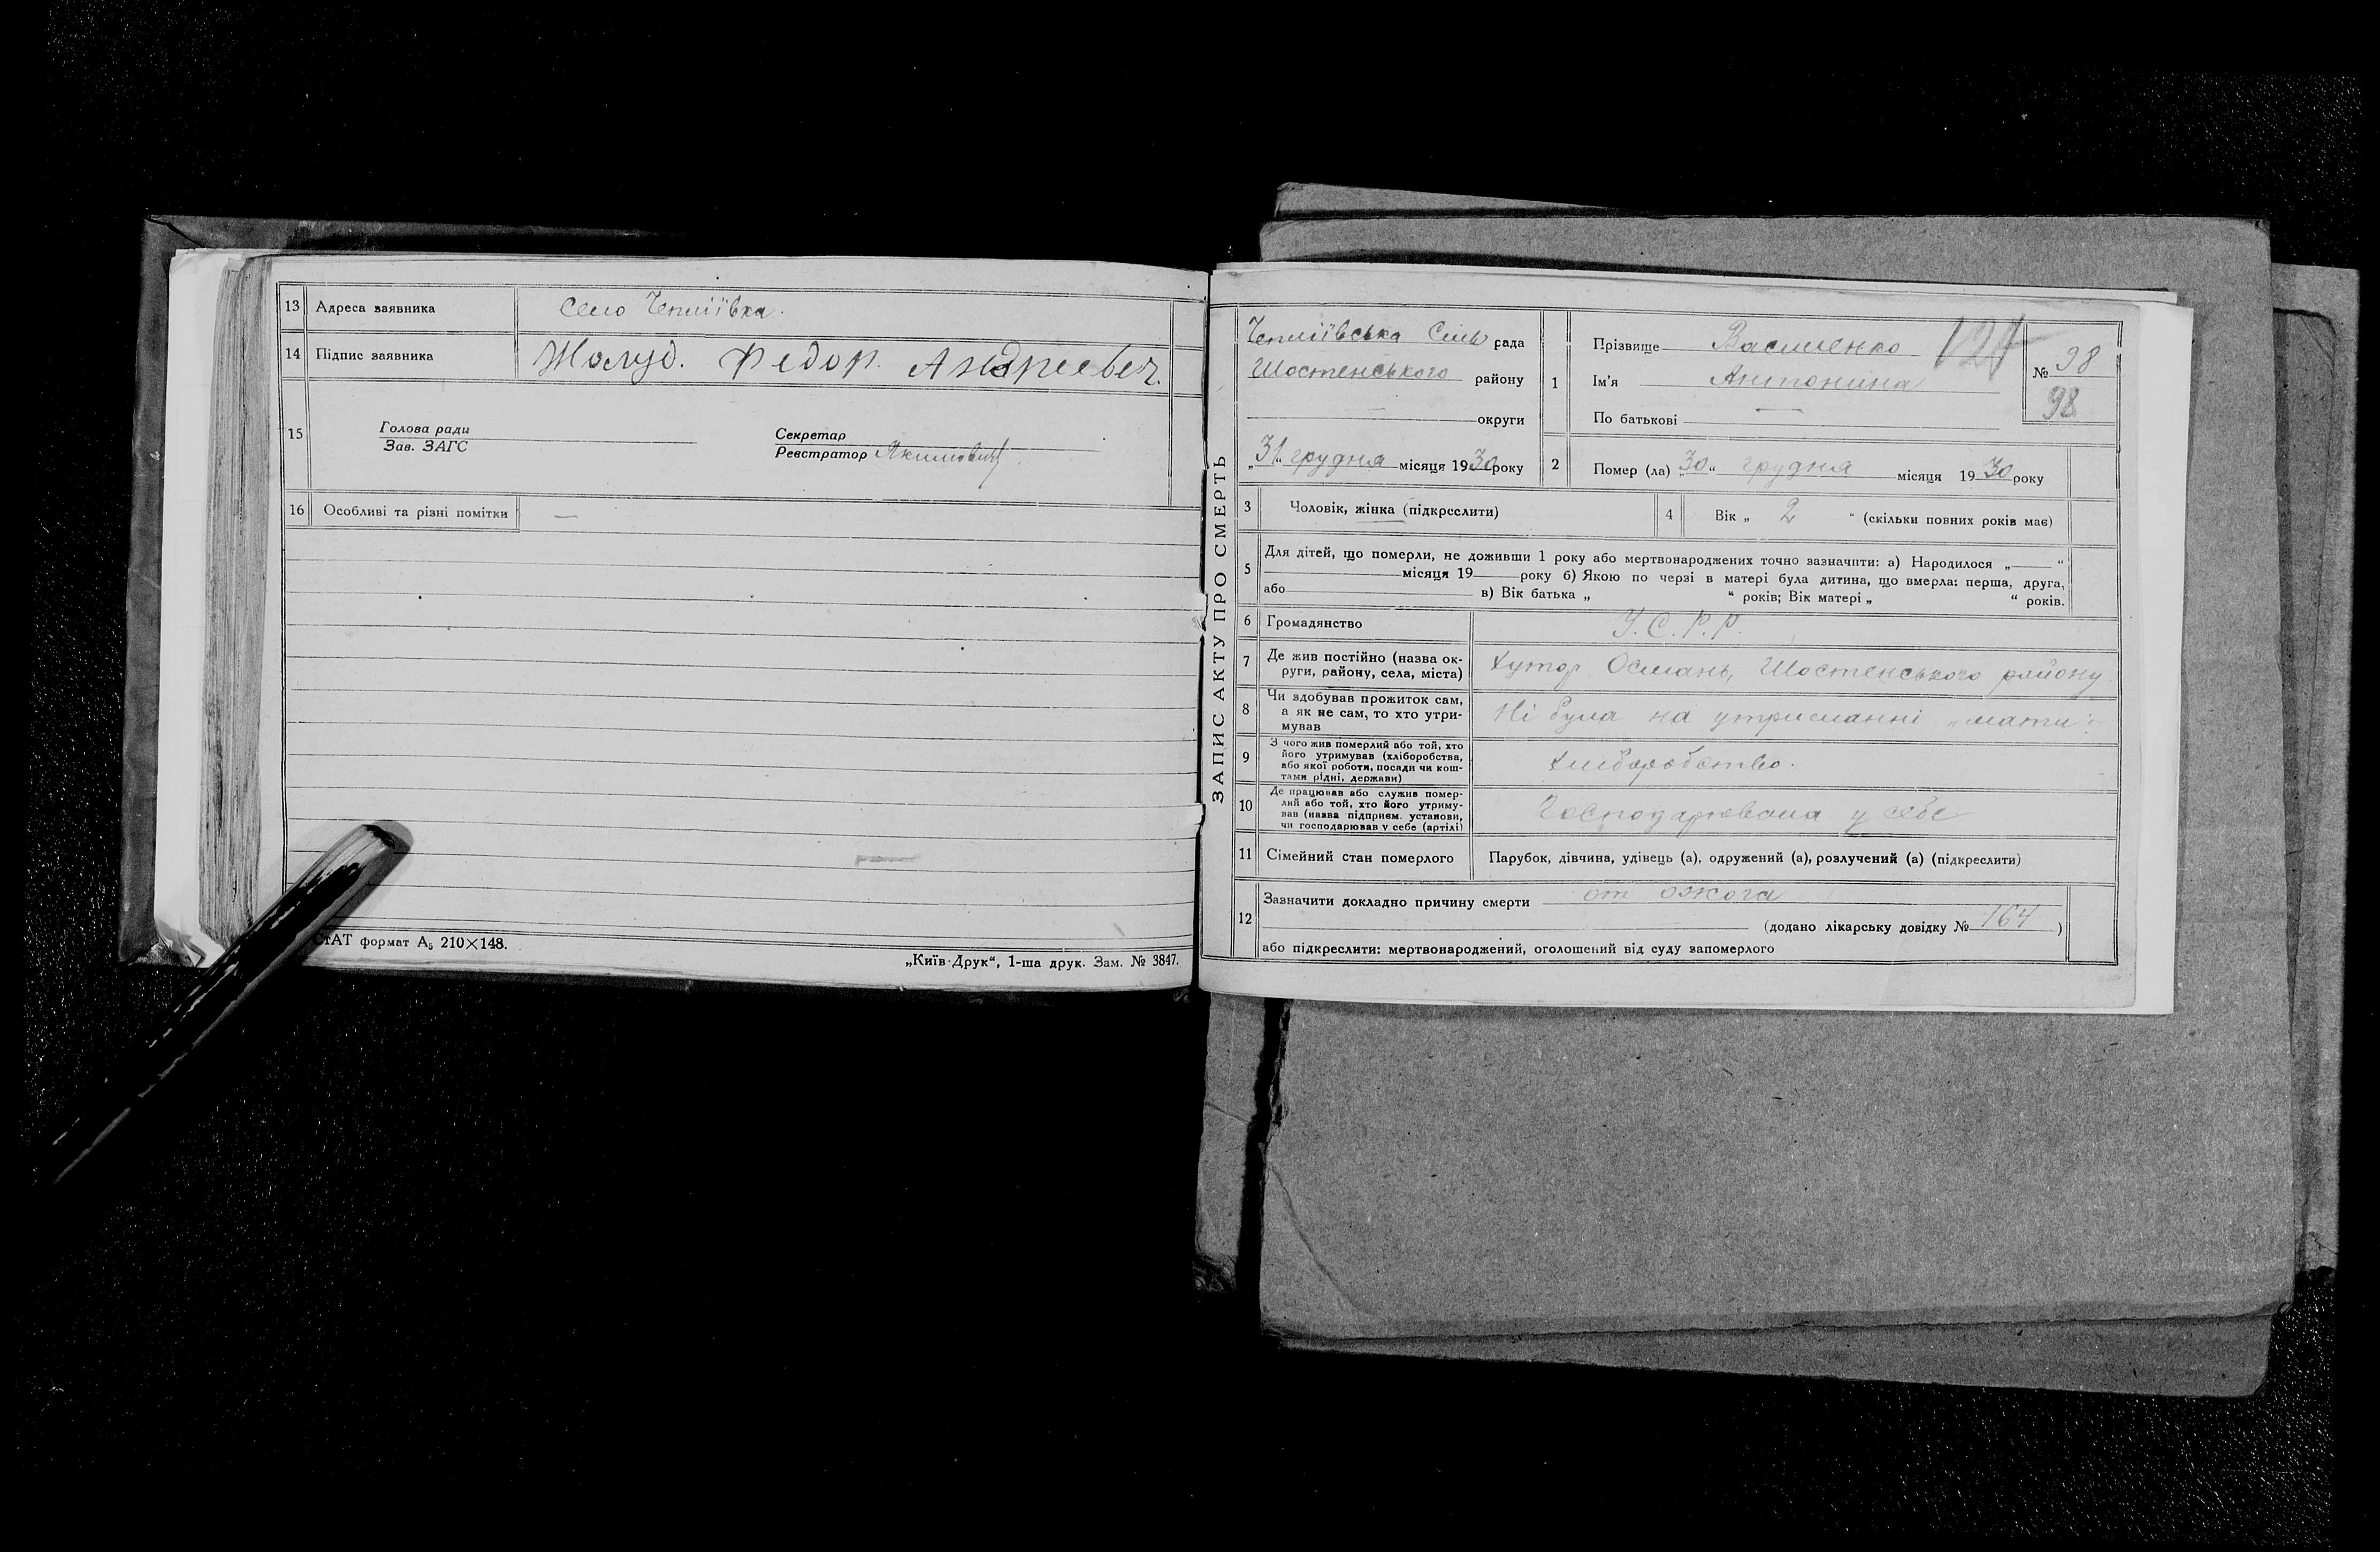 13 Адреса заявника Село Чепліївка.
14 Підпис заявника Жолуд. Федор. Андреевеч.
15 Голова ради
Зав. ЗАГС
Секретар
Реєстратор
16 Особливі та різні помітки —
СтАТ формат А₅ 210×148.
„Київ-Друк“, 1-ша друк. Зам. № 3847.
ЗАПИС АКТУ ПРО СМЕРТЬ
Чепліївська Сіль рада
Шостенського району
— округи
„31“ грудня місяця 1930 року
1 Прізвище Василенко
Ім'я Антонина
По батькові —
№ 98
98
2 Помер (ла) „30“ грудня місяця 1930 року
3 Чоловік, жінка (підкреслити)
4 Вік „ 2 “ (скільки повних років має)
5 Для дітей, що померли, не доживши 1 року або мертвонароджених точно зазначити: а) Народилося „ “
місяця 19 року б) Якою по черзі в матері була дитина, що вмерла: перша, друга,
або в) Вік батька „ “ років; Вік матері „ “ років.
6 Громадянство У.С.Р.Р.
7 Де жив постійно (назва ок-
руги, району, села, міста) хутор Османь, Шостенського району
8 Чи здобував прожиток сам,
а як не сам, то хто утри-
мував Ні була на утриманні „мати“.
9 З чого жив померлий або той, хто
його утримував (хліборобства,
або якої роботи, посади чи кош-
тами рідні, держави) хліборобство.
10 Де працював або служив помер-
лий або той, хто його утриму-
вав (назва підприєм. установи,
чи господарював у себе (артілі) Господарювала у себе
11 Сімейний стан померлого Парубок, дівчина, удівець (а), одружений (а), розлучений (а) (підкреслити)
12 Зазначити докладно причину смерти от ожога
(додано лікарську довідку № 164 )
або підкреслити: мертвонароджений, оголошений від суду запомерлого